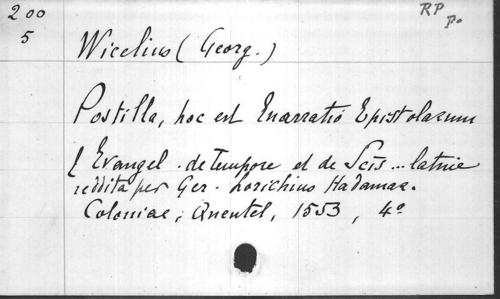 200
5
RP
po
Wicelius (Georg.)
Postilla, hoc est Enarratio Epistolarum
& Evangel. de tempore et de Scis ... latine
reddita per Ger. Lorichius Hadamar.
Coloniae, Quentel, 1553, 4º